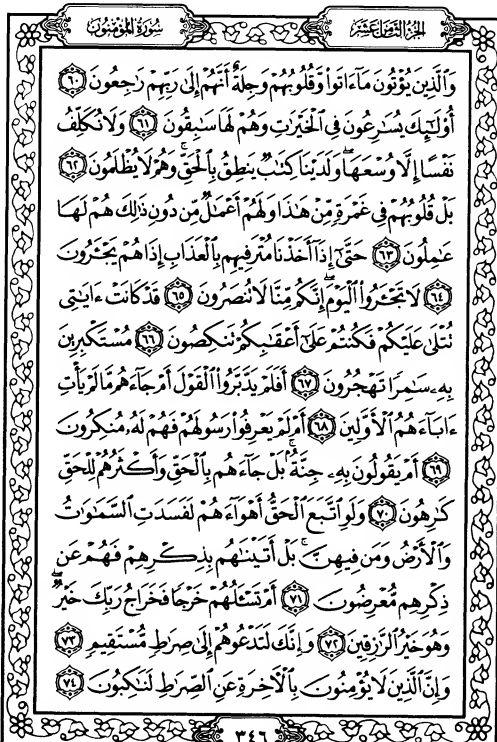 سُورَةُ المُؤْمِنُونَ
الجُزْءُ الثَّامِنَ عَشَرَ
وَٱلَّذِينَ يُؤْتُونَ مَآءَاتَوا۟ وَّقُلُوبُهُمْ وَجِلَةٌ أَنَّهُمْ إِلَىٰ رَبِّهِمْ رَٰجِعُونَ ٦٠
أُو۟لَٰٓئِكَ يُسَٰرِعُونَ فِى ٱلْخَيْرَٰتِ وَهُمْ لَهَا سَٰبِقُونَ ٦١ وَلَا نُكَلِّفُ
نَفْسًا إِلَّا وُسْعَهَا ۖ وَلَدَيْنَا كِتَٰبٌ يَنطِقُ بِٱلْحَقِّ ۚ وَهُمْ لَا يُظْلَمُونَ ٦٢
بَلْ قُلُوبُهُمْ فِى غَمْرَةٍ مِّنْ هَٰذَا وَلَهُمْ أَعْمَٰلٌ مِّن دُونِ ذَٰلِكَ هُمْ لَهَا
عَٰمِلُونَ ٦٣ حَتَّىٰٓ إِذَآ أَخَذْنَا مُتْرَفِيهِم بِٱلْعَذَابِ إِذَا هُمْ يَجْـَٔرُونَ
٦٤ لَا تَجْـَٔرُوا۟ ٱلْيَوْمَ ۖ إِنَّكُم مِّنَّا لَا تُنصَرُونَ ٦٥ قَدْ كَانَتْ ءَايَٰتِى
تُتْلَىٰ عَلَيْكُمْ فَكُنتُمْ عَلَىٰٓ أَعْقَٰبِكُمْ تَنكِصُونَ ٦٦ مُسْتَكْبِرِينَ
بِهِۦ سَٰمِرًا تَهْجُرُونَ ٦٧ أَفَلَمْ يَدَّبَّرُوا۟ ٱلْقَوْلَ أَمْ جَآءَهُم مَّا لَمْ يَأْتِ
ءَابَآءَهُمُ ٱلْأَوَّلِينَ ٦٨ أَمْ لَمْ يَعْرِفُوا۟ رَسُولَهُمْ فَهُمْ لَهُۥ مُنكِرُونَ
٦٩ أَمْ يَقُولُونَ بِهِۦ جِنَّةٌۢ ۚ بَلْ جَآءَهُم بِٱلْحَقِّ وَأَكْثَرُهُمْ لِلْحَقِّ
كَٰرِهُونَ ٧٠ وَلَوِ ٱتَّبَعَ ٱلْحَقُّ أَهْوَآءَهُمْ لَفَسَدَتِ ٱلسَّمَٰوَٰتُ
وَٱلْأَرْضُ وَمَن فِيهِنَّ ۚ بَلْ أَتَيْنَٰهُم بِذِكْرِهِمْ فَهُمْ عَن
ذِكْرِهِم مُّعْرِضُونَ ٧١ أَمْ تَسْـَٔلُهُمْ خَرْجًا فَخَرَاجُ رَبِّكَ خَيْرٌ ۖ
وَهُوَ خَيْرُ ٱلرَّٰزِقِينَ ٧٢ وَإِنَّكَ لَتَدْعُوهُمْ إِلَىٰ صِرَٰطٍ مُّسْتَقِيمٍ ٧٣
وَإِنَّ ٱلَّذِينَ لَا يُؤْمِنُونَ بِٱلْءَاخِرَةِ عَنِ ٱلصِّرَٰطِ لَنَٰكِبُونَ ٧٤
٣٤٦